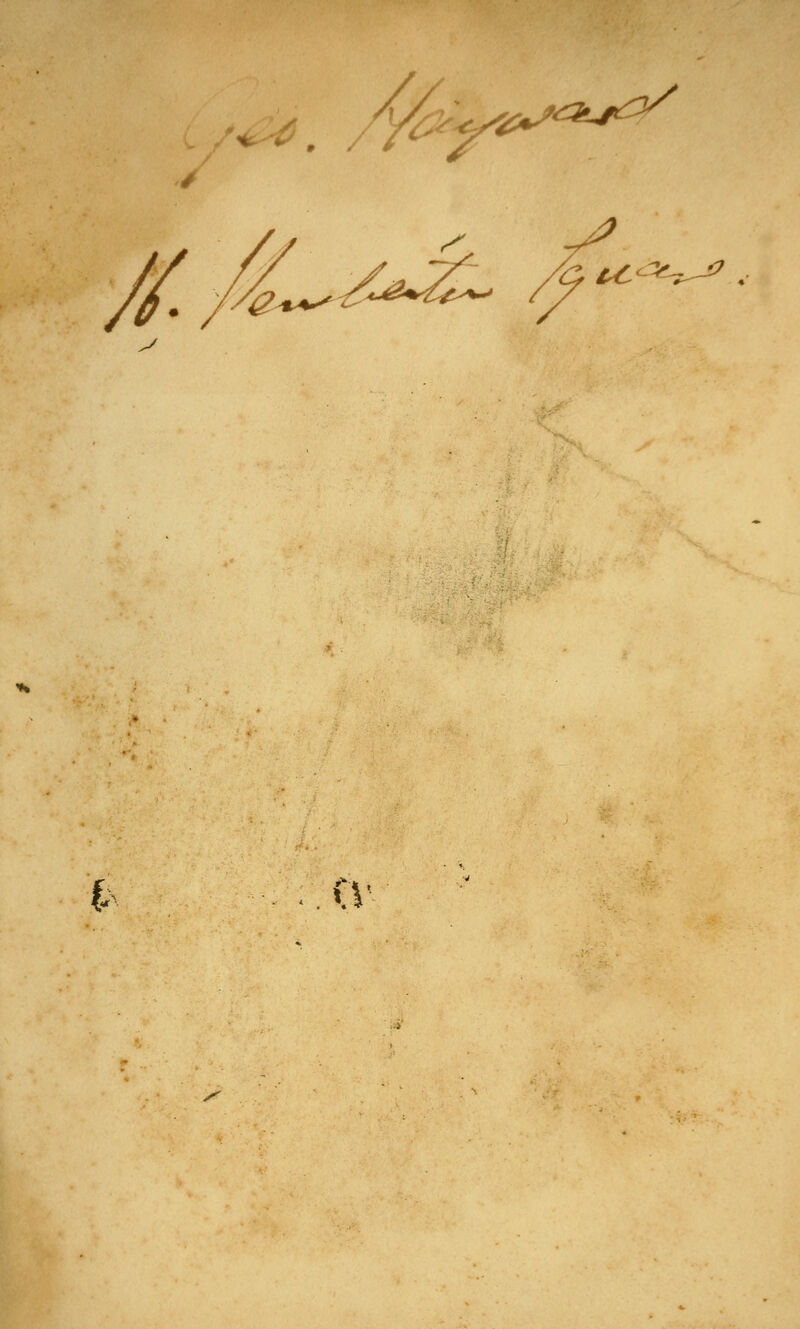 Geo. Hayward
16. Pemberton Square.